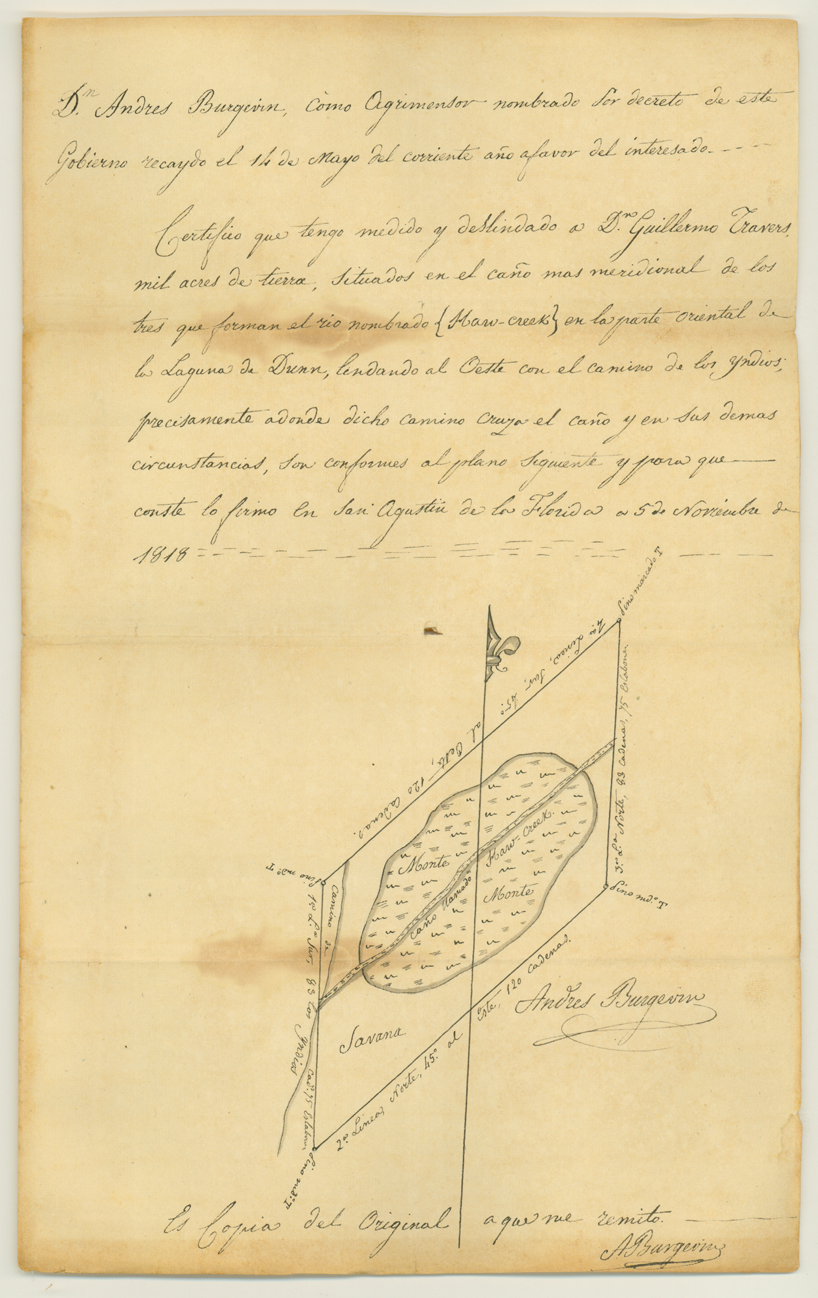 Dn Andres Burgevin, como Agrimensor nombrado por decreto de este
Gobierno recaydo el 14 de Mayo del corriente año a favor del interesado.
Certifico que tengo medido y deslindado a Dn Guillermo Travers,
mil acres de tierra, situados en el caño mas meridional de los
tres que forman el rio nombrado {Haw-creek} en la parte oriental de
la Laguna de Dunn, lindando al Oeste con el camino de los Yndios;
precisamente adonde dicho camino cruza el caño y en sus demas
circunstancias, son conformes al plano siguiente y para que
conste lo firmo en San Agustin de la Florida a 5 de Noviembre de
1818
Pino marcado T
4a Linea, Sur, 45°.
al Oeste, 120 Cadenas.
3ra La Norte, 83 Cadenas, 75 Eslabones
Pino mdo T
Camino de
los Yndios
1a La Sur, 83
Cads 75 Eslabon
Monte
Haw-Creek.
Monte
Caño llamado
Pino mdo T
Andres Burgevin
Savana
2a Linea Norte, 45°. al Este, 120 cadenas.
Pino mdo T
Es Copia del Original a que me remito.
ABurgevin